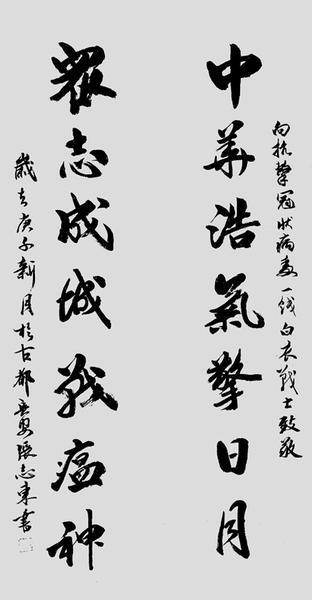 向抗擊冠狀病毒一线白衣战士致敬
中華浩氣擎日月
眾志成城战瘟神
歲在庚子新月於古都張志東書